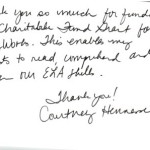 k you so much for fundi
Charitable Fund Grant fo
Works. This enables my
ts to read, comprehend and
our ELA skills.
Thank you!
Courtney